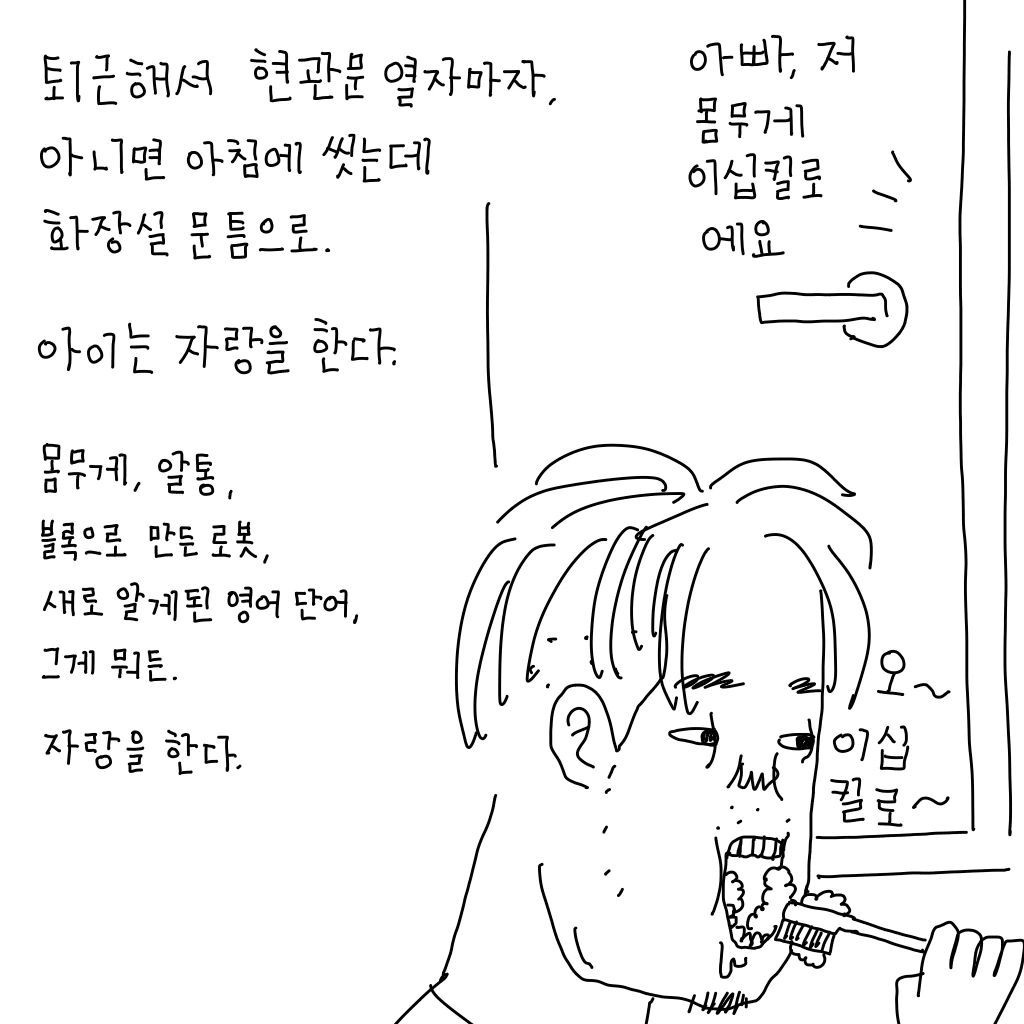 퇴근해서 현관문 열자마자,
아니면 아침에 씻는데
화장실 문 틈으로.
아이는 자랑을 한다.
몸무게, 알통,
블록으로 만든 로봇,
새로 알게된 영어 단어,
그게 뭐든.
자랑을 한다.
아빠, 저
몸무게
이십킬로
에요
오~
이십
킬로~